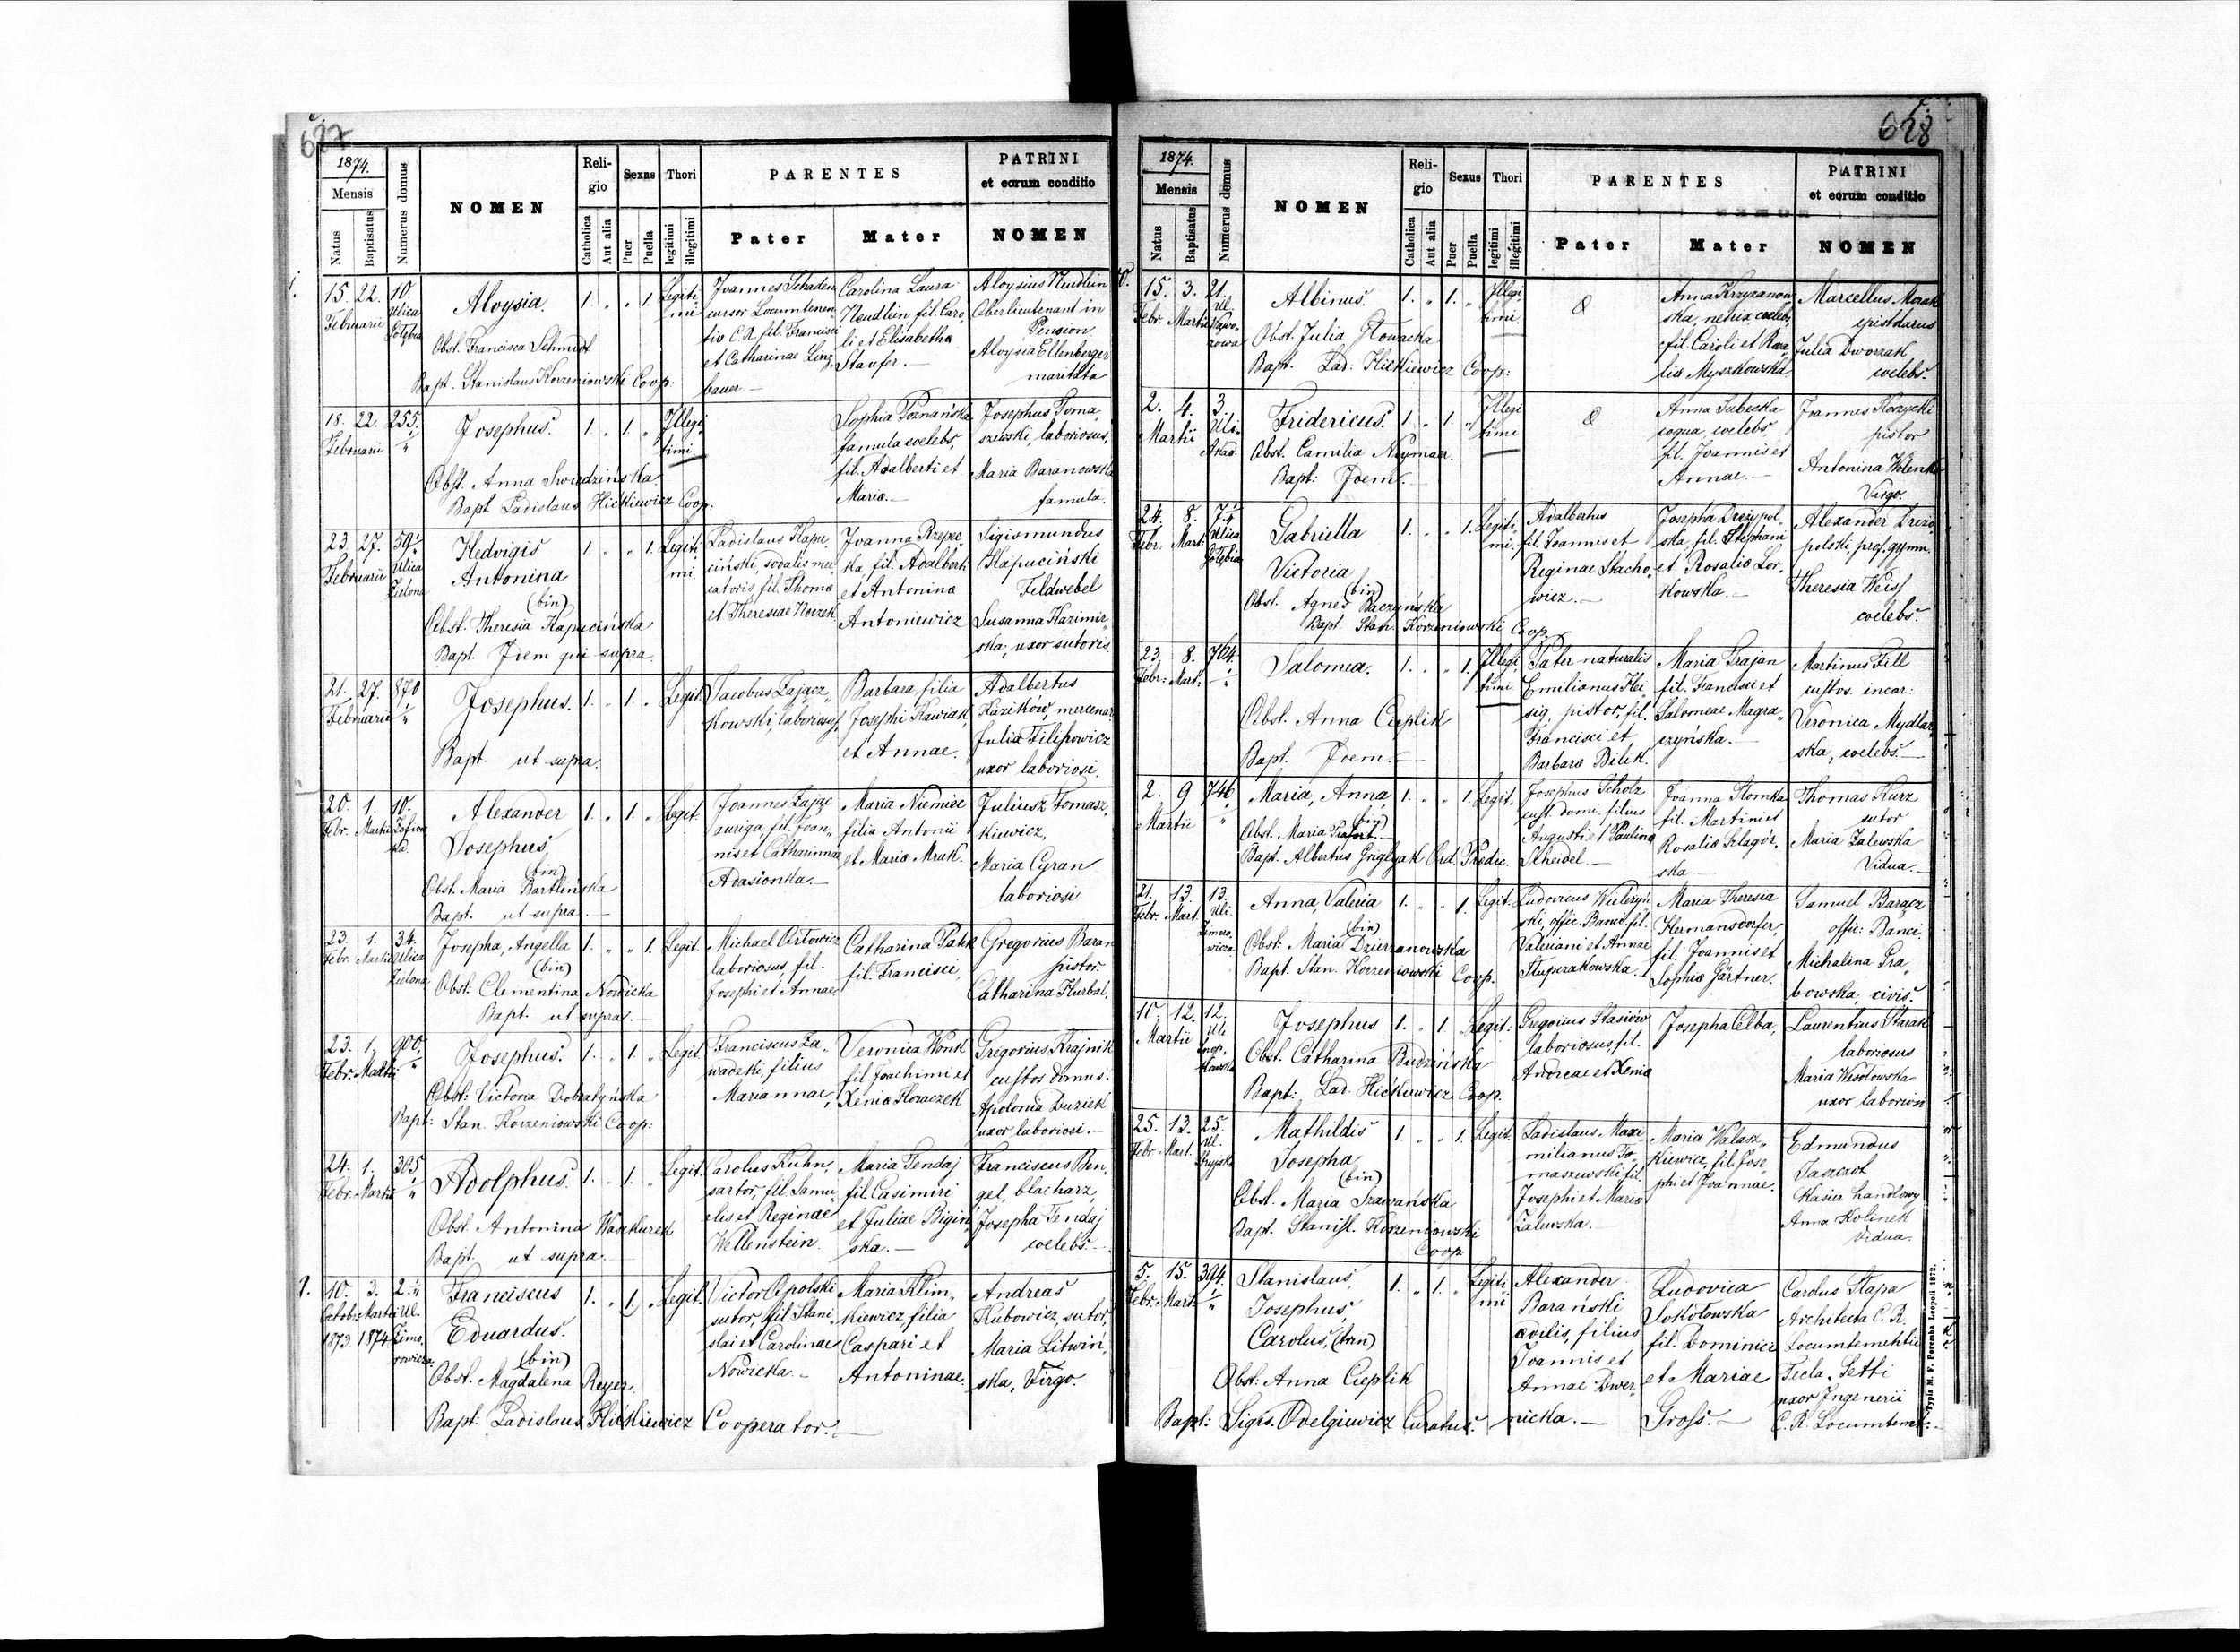 627
1874.
Mensis
Natus
Baptisatus
Numerus domus
NOMEN
Reli-
gio
Catholica
Aut alia
Sexus
Puer
Puella
Thori
legitimi
illegitimi
PARENTES
Pater
Mater
PATRINI
et eorum conditio
NOMEN
15. 22. 10.
Februarii Ulica
Gołębia
Aloysia.
1. " " 1.
Legiti
mi
Obst. Francisca Schmidt
Bapt. Stanislaus Korzeniowski Coop:
Joannes Schaden
cursor Locumtenen
tio C.R. fil. Francisci
et Catharinae Linz
bauer.—
Carolina Laura
Neudlein fil. Caro,
li et Elisabetha
Staufer.—
Aloysius Neudlein
Oberlieutenant in
Pension
Aloysia Ellenberger
maritata
18. 22. 255.
Februarii "
Josephus.
1. " 1. "
Illegi
timi
Obst. Anna Swiedzińska
Bapt. Ladislaus Hićkiewicz Coop.
Sophia Poznańska
famula coelebs,
fil. Adalberti et
Maria.—
Josephus Toma,
szewski, laboriosus,
Maria Baranowska
famula.
23. 27. 59.
Februarii Ulica
Zielona
Hedvigis
Antonina
(bin)
1. " " 1.
Legiti
mi
Obst. Theresia Kapucińska
Bapt. Idem qui supra.
Ladislaus Kapu,
ciński, sodalis mer,
catoris, fil. Thoma
et Theresiae Worzek
Joanna Rzepec,
ka, fil. Adalberti
et Antonina
Antoniewicz
Sigismundus
Kapuciński
Feldwebel
Susanna Kazimir,
ska, uxor sutoris.
21. 27. 870
Februarii "
Josephus.
1. " 1. "
Legit.
Bapt. ut supra.
Jacobus Zając,
kowski, laboriosus,
Barbara, filia
Josephi Kawiak,
et Annae.
Adalbertus
Kazikow, mercenar
Julia Filipowicz
uxor laboriosi.
20. 1. 10.
Febr. Martii
Alexander
Josephus,
(bin)
1. " 1. "
Legit.
Obst. Maria Bartlińska
Bapt. ut supra.—
Joannes Zając
auriga, fil. Joan,
nis et Catharinna
Adasionka.—
Maria Niemiec
filia Antonii
et Maria Mruk.
Juliusz Tomasz,
kiewicz,
Maria Cyran
laboriosi
23. 1. 34.
Febr. Martii Ulica
Zielona
Josepha, Angella
(bin)
1. " " 1.
Legit.
Obst: Clementina Nowicka
Bapt. ut supra.—
Michael Artowicz
laboriosus, fil.
Josephi et Annae,
Catharina
fil. Francisci,
Gregorius Baran
pistor.
Catharina Kurbal,
23. 1. 900.
Febr. Martii "
Josephus.
1. " 1. "
Legit.
Obst: Victoria Dobratyńska
Bapt: Stan. Korzeniowski Coop:
Franciscus Za,
wadzki, filius
Mariannae,
Veronica Wonk
fil. Joachimi et
Xenia Horaczek
Gregorius Krajnik
custos domus.
Apolonia Duziek
uxor laboriosi.—
24. 1. 305
Febr. Martii "
Adolphus.
1. " 1. "
Legit.
Obst. Antonina Waschurek
Bapt. ut supra.—
Carolus Kuhn,
sartor, fil. Samu,
elis et Reginae
Wellenstein.
Maria Tendaj
fil. Casimiri
et Juliae Bigiń,
ska.—
Franciscus Ben,
gel, blacharz,
Josepha Tendaj
coelebs.—
10. 3. 2.
Octobr. Martii Ul.
1873. 1874. Zimo,
rowicza
Franciscus
Eduardus.
(bin)
1. " 1. "
Legit.
Obst. Magdalena Reyer
Bapt: Ladislaus Hićkiewicz Cooperator.—
Victor Opolski
sutor, fil. Stani,
slai et Carolinae
Nowicka.—
Maria Klim,
kiewicz, filia
Caspari et
Antoninae.
Andreas
Kubowicz, sutor,
Maria Litwiń,
ska, Virgo.
628
1874.
Mensis
Natus
Baptisatus
Numerus domus
NOMEN
Reli-
gio
Catholica
Aut alia
Sexus
Puer
Puella
Thori
legitimi
illegitimi
PARENTES
Pater
Mater
PATRINI
et eorum conditio
NOMEN
15. 3. 21.
Febr. Martii Ul.
Albinus.
1. " 1. "
Illegi
timi.
Obst. Julia Głowacka
Bapt. Lad. Hićkiewicz Coop:
Anna Krzyzanow
ska, netrix, coelebs,
fil. Caroli et Roza,
lia Myszkowska.
Marcellus Morak
epistolarus
Julia Dworzak
coelebs.
2. 4. 3.
Martii Uli.
Akad.
Fridericus.
1. " 1. "
Illegi
timi
Obst. Camilia Neyman.
Bapt: Idem.—
Anna Lubecka
coqua, coelebs
fil. Joannis et
Annae.—
Joannes Korzycki
pistor
Antonina Wolenka
Virgo.
24. 8. 7.
Febr. Mart. Ulica
Gołębia
Gabriella
Victoria
(bin)
1. " " 1.
Legiti,
mi
Obst. Agnes Baczyńska
Bapt. Stan. Korzeniowski Coop.
Adalbertus
fil. Joannis et
Reginae Stacho,
wicz.—
Josepha Drezypol,
ska fil. Stephani
et Rosalia Lor,
kowska.—
Alexander Drezo,
polski prof. gymn.
Theresia Weiss
coelebs.
23. 8. 764.
Febr. Mart. "
Salomea.
1. " " 1.
Illegi
timi
Obst. Anna Cieplik
Bapt. Idem.—
Pater naturalis
Emilianus Hei,
sig, pistor, fil.
Francisci et
Barbara Bilik.
Maria Trajan
fil. Francisci et
Salomeae Magra,
czyńska.—
Martinus Fill
custos. incar:
Veronica Mydlar,
ska, coelebs.—
2. 9 746
Martii "
Maria, Anna,
(bin)
1. " " 1.
Legit.
Obst. Maria Prafort.
Bapt. Albertus Griglyak Ord. Predic.
Josephus Scholz
cust. domi, filius
Augusti et Paulina
Scheidel.—
Joanna Słomka
fil. Martini et
Rosalia Szlagór,
ska—
Thomas Kurz
sutor
Maria Zalewska
Vidua.—
21. 13. 13.
Febr. Mart. Uli.
Zimoro,
wicza
Anna, Valeria
(bin)
1. " " 1.
Legit.
Obst. Maria Dzierzanowska
Bapt. Stan. Korzeniowski Coop.
Ludovicus
ski, offic. Banci. fil.
Valeriani et Annae
Słupczakowska.
Maria Theresia
Hermansdorfer,
fil. Joannis et
Sophia Gärtner.
Samuel Barącz
offic: Banci.
Michalina Gra,
bowska, civis.
10. 12. 12.
Martii Uli
Josephus
1. " 1. "
Legit:
Obst. Catharina Budzińska
Bapt: Lad. Hićkiewicz Coop.
Gregorius Stasiów
laboriosus, fil.
Andreae et Xenia
Josepha Celba,
Laurentius Starak
laboriosus
Maria Wesołowska
uxor laboriosi
25. 13. 25.
Febr. Mart. Ul.
Stryjska
Mathildis
Josepha
(bin)
1. " " 1.
Legit.
Obst. Maria Szawzańska
Bapt. Stanisl. Korzeniowski
Coop.
Ladislaus Maxi
milianus To,
maszewski fil.
Josephi et Maria
Zalewska.—
Maria Walasz,
kiewicz, fil. Jose,
phi et Joannae.
Edmundus
Jaszcrot
Kasier handlowy
Anna Kolinek
Vidua.
5. 15. 394.
Febr. Mart. "
Stanislaus,
Josephus
Carolus, (trin)
1. " 1. "
Legiti,
mi
Obst. Anna Cieplik
Bapt: Sigis. Odelgiewicz Curatus.
Alexander
Barański
aedilis, filius
Joannis et
Annae Dwer,
nicka.—
Ludovica
Sokołowska
fil. Dominici
et Mariae
Gross.—
Carolus Stapa
Architecta C. R.
Locumtenentiae
Tecla Setti
uxor Ingenerii
C. R. Locumtenet.
Typis M. F. Poremba Leopoli 1872.